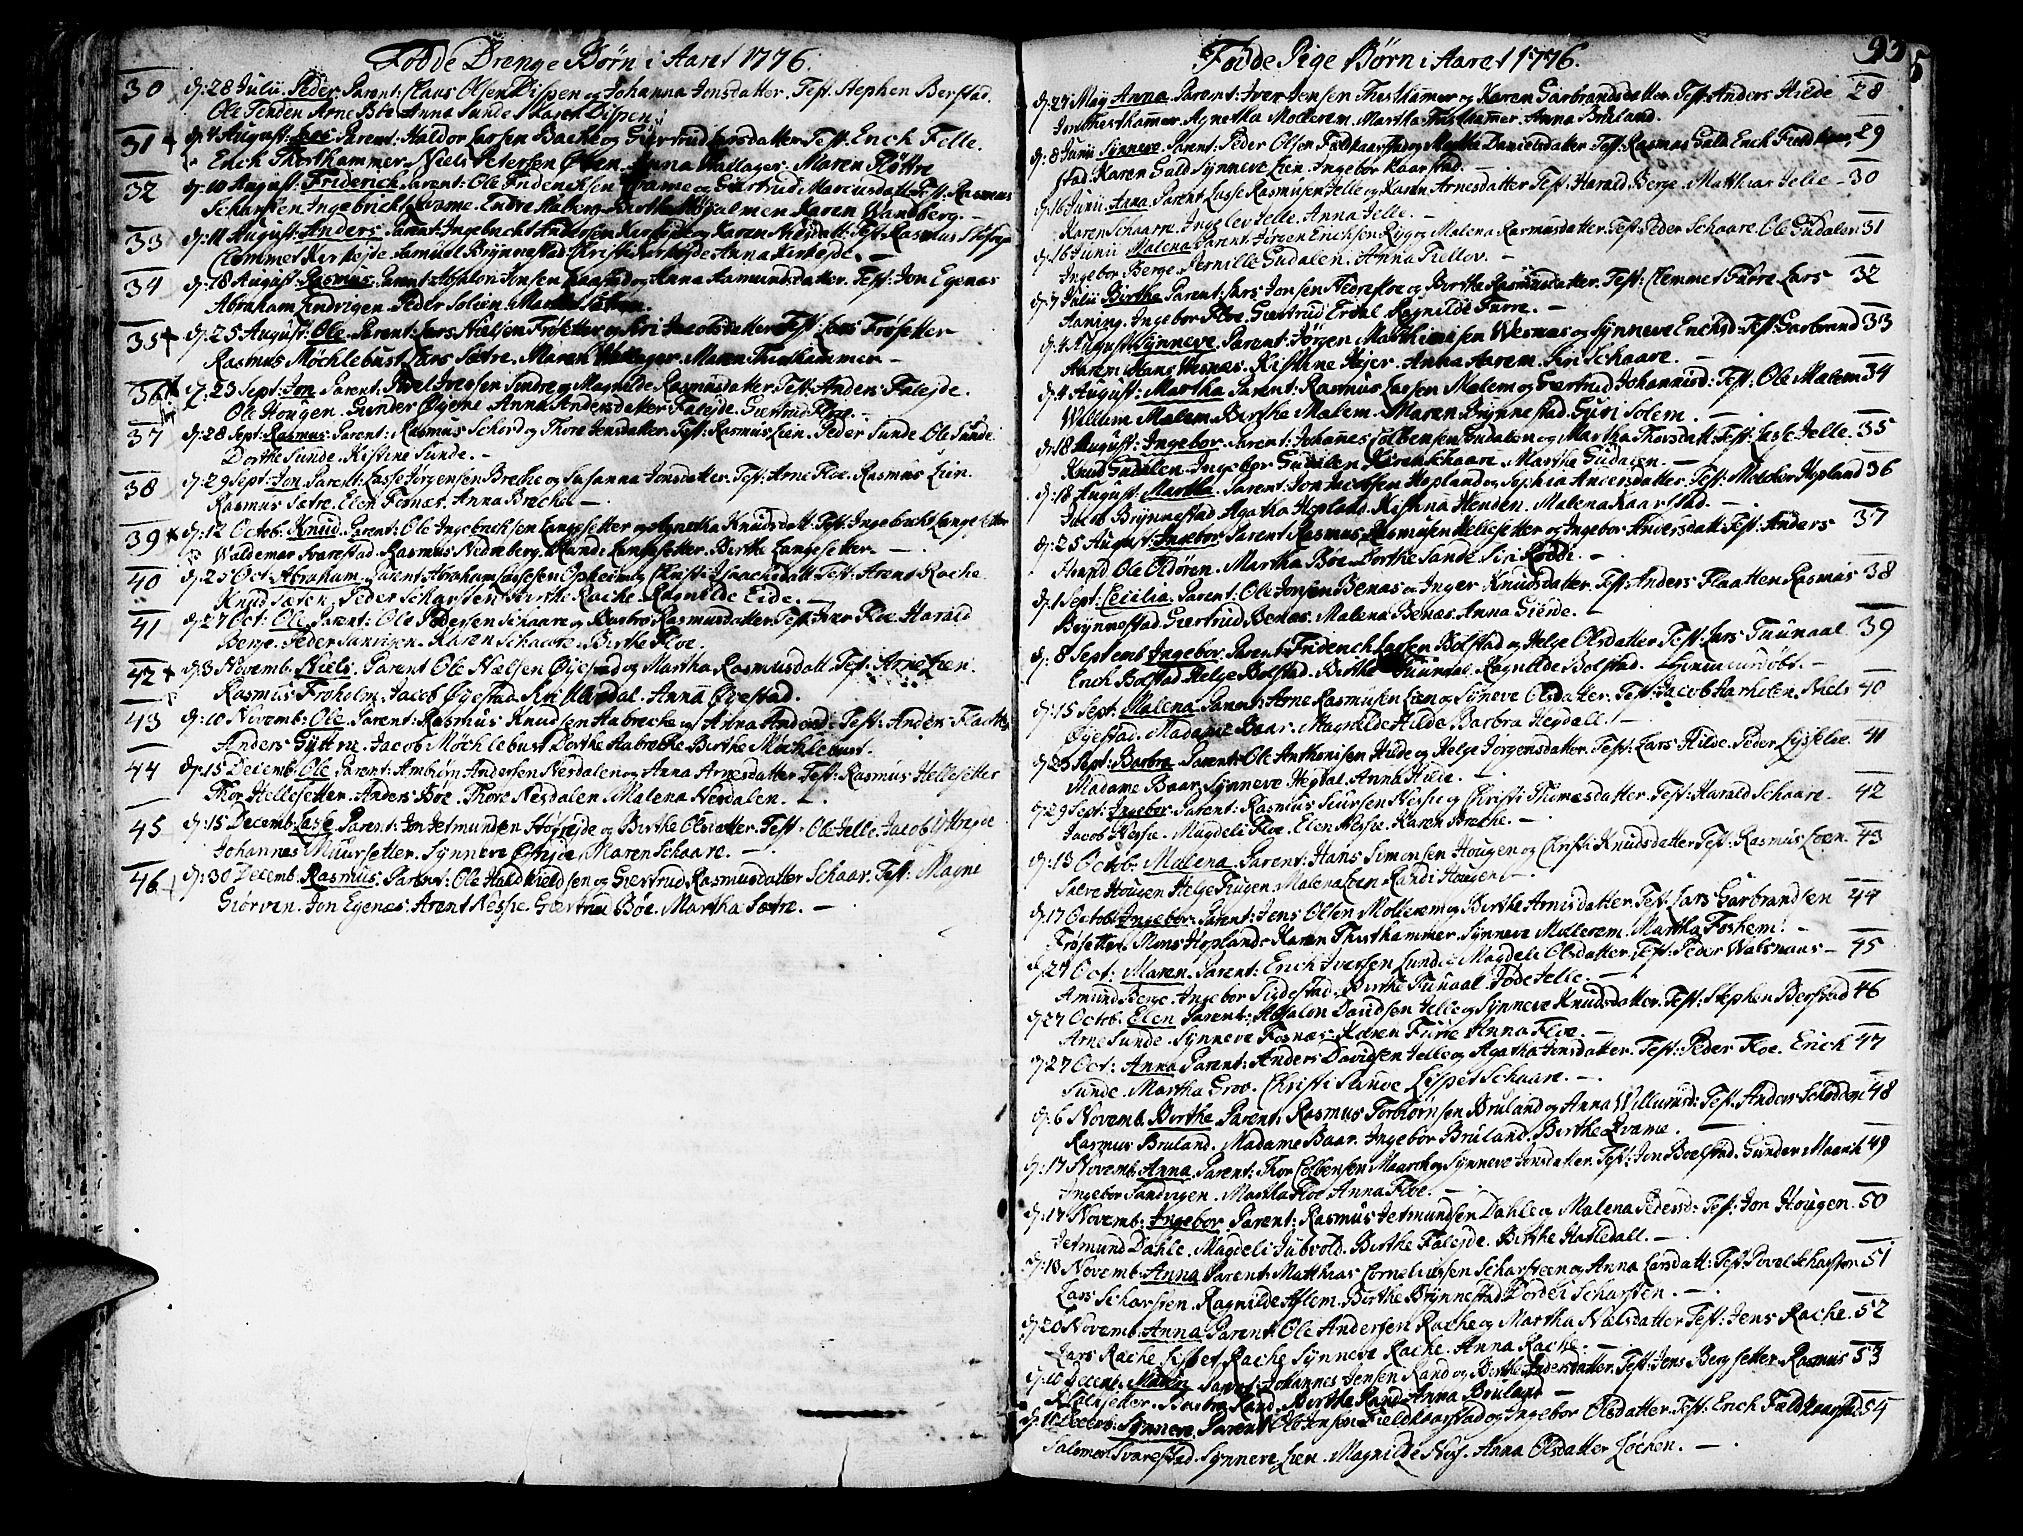 Fødde Drenge Børn i Aaret 1776.
30 d: 28 Julii. Peder Parent: Claus Olsen Dispen og Johanna Jonsdatter. Test: Stephen Berstad.
Ole Tenden Arne Böe Anna Sunde Dispen.
31 d: 4 August: Parent: Haldor Larsen og Giertrud Larsdatter. Test: Erich Felle.
Erich Thorthammer. Niels Petersen Anna Maren
32 d: 10 August: Friderich Parent: Ole Friderichsen Qvame og Giertrud Marcusdatter. T: Rasmus
Scharsten Ingebricht Qvame. Endre Birthe Karen Wandberg. –
33 d: 11 August: Anders Parent: Ingebricht Andersen og Karen Test: Rasmus
Clemmet Kirkejde Samuel Brynnestad Christi Kirkejde Anna Kirkejde. –
34 d: 18 August: Rasmus Parent: Absalon Jonsen og Anna Aamundsdatter. Test: Jon Egenæs
Abraham Endrigen. Peder Solem. Martha
35 d: 25 August: Ole. Parent: Lars Nielsen Frøsetter og Siri Jacobsdatter Test: Lars Frøsetter
Rasmus Möchlebust Lars Sætre. Maren Maren
36 d: 23 Sept: Jon Parent: Poul Iversen Sindre og Magnilde Rasmusdatter. Test: Anders Falejde.
Ole Hougen. Gunder Øyene Anna Andersdatter Falejde. Giertrud Floe.
37 d: 28 Sept: Rasmus Parent: Rasmus Schord og Thore Jensdatter. Test: Rasmus Lien. Peder Sunde Ole Sunde.
Dorthe Sunde. Kirstine Sunde. –
38 d: 29 Sept: Jon Parent: Lasse Jørgensen Breche og Susanna Jonsdatter. Test: Arne Floe. Rasmus Lien.
Rasmus Sætre. Elen Fornæs. Anna Breche. –
39 d: 12 Octob: Knud. Parent: Ole Ingebrichsen Langesetter og Agnetha Knudsdatt: Test: Ingebricht Langesetter
Waldemar Svarestad. Rasmus Nidreberg. Rande Langesetter. Birthe Langesetter. –
40 d: 25 Oct: Abraham. Parent: Abraham Lassesen Opheim og Christi Isaachsdatt: Test: Arent Rache
Knud Særen. Peder Scharsten Birthe Rache. Ragnilde Eide. –
41 d: 27 Oct: Ole Parent: Ole Pedersen Schaare og Barbro Rasmusdatter. Test: Iver Floe. Harald
Berge. Peder Sannigen. Karen Schaare. Birthe Floe.
42 d: 3 Novemb. Niels. Parent Ole Nielsen Øyestad og Martha Rasmusdatt. Test: Arne Lien.
Rasmus Froholm. Jacob Øyestad Siri Anna Øyestad.
43 d: 10 Novemb: Ole Parent: Rasmus Knudsen Aabrecke og Anna Test: Anders Flaaten
Anders Gyttre. Jacob Möchlebust Dorthe Aabrecke Birthe Möchlebust.
44 d: 15 Decemb: Ole Parent: Ambiørn Andersen Nesdalen og Anna Arnesdatter Test: Rasmus Hellesetter
Thor Hellesetter. Anders Böe. Thore Nesdalen. Malena Nesdalen. –
45 d: 15 Decemb: Lasse Parent: Jon Jetmundsen og Birthe Olsdatter. Test: Ole Jelle. Jacob
Johannes Muursetter. Synneve Maren Schaare. –
46 d: 30 Decemb. Rasmus. Parent: Ole og Giertrud Rasmusdatter Schaar. Test: Magne
Giørven. Jon Egenæs. Arent Nessie. Giertrud Böe. Martha Sætre. –
Fødde Pige Børn i Aaret 1776.
95
d: 27 Maij Anna. Parent: Iver Jensen Thisthamer og Karen Garbrandsdatter. Test: Anders Hilde 28
Jon Thisthamer. Agnetha Mollerem. Martha Thisthamer. Anna Bruland.
d: 8 Junii Synneve Parent: Peder Olsen og Martha Danielsdatter. Test: Rasmus Gald Erich 29
stad. Karen Gald Synneve Lien. Ingebor Kaarstad. –
d: 16 Junii. Anna. Parent Lasse Rasmusen Jelle og Karen Arnesdatter Test: Harald Berge. Matthias Jelle. – 30
Karen Schaare. Ingelev Jelle. Anna Jelle. –
d: 16 Junii Malena Parent: Jørgen Erichsen Rygg og Malena Rasmusdatter. Test: Peder Schaare. Ole Gudalen 31
Ingebor Berge. Pernille Gudalen. Anna
d: 7 Julii Birthe Parent: Lars Jonsen Nedrefloe og Birthe Rasmusdatter. Test: Clemmet Lars 32
Aaning. Ingebor Floe. Giertrud Erdal Ragnilde Furre. –
d: 4 August Synneve. Parent: Jørgen Matthissen Wesnæs og Synneve Erichsd: Test: Garbrand 33
Aarem Hans Wesnæs. Kirstine Hejer. Anna Aarem Siri Schaare. –
d: 4 August: Martha Parent: Rasmus Larsen Malem og Giertrud Johannisd: Test: Ole Malem 34
Willum Malem. Birthe Malem. Maren Brynnestad. Guri Solem. –
d: 18 August: Ingebor. Parent: Johannes Colbensen Gudalen og Martha Thorsdatt: Test: Lasse Jelle. 35
Knud Gudalen. Ingebor Gudalen. Karen Schaare. Martha Gudalen. –
d: 18 August: Martha. Parent: Jon Hopland og Sophia Andersdatter. Test: Melchior Hopland 36
Jacob Brynnestad Agatha Hopland. Kistina Henden. Malena Kaarstad. –
d: 25 August: Ingebor Parent: Rasmus Rasmusen Hellesetter og Ingebor Andersdatt: Test: Anders 37
Ole Oldören. Martha Böe. Dorthe Sande. Siri
d: 1 Sept: Cecilia. Parent: Ole Jonsen Benæs og Inger Knudsdatter. Test: Anders Flaatten Rasmus 38
Brynnestad Giertrud Benæs. Malena Benæs. Anna Gierde. –
d: 8 Septemb Ingebor Parent: Friderich Larsen Bolstad og Helge Olsdatter. Test: Lars Tuunaal 39
Erich Bolstad Helge Bolstad. Birthe Tuunaal. Ragnilde Bolstad.
d: 15 Sept: Malena Parent: Arne Rasmusen Lien og Syneve Olsdatter. Test: Jacob Niels 40
Øyestad. Madame Baar. Magnilde Hilde Barbra Hegdall. –
d: 23 Sept: Barbra Parent: Ole Anthonisen Hilde og Helge Jørgensdatter. Test: Lars Hilde. Peder 41
Madame Baar. Synneve Hegdal. Anna Hilde. –
d: 29 Sept: Ingebor. Parent: Rasmus Siursen Nessie og Christi Thomasdatter. Test: Harald Schaare. 42
Jacob Nessie. Magdeli Floe. Elen Nessie. Karen Breche. –
d: 13 Octob: Malena Parent: Hans Simonsen Hougen og Christi Knudsdatter Test: Rasmus Lien. 43
Salve Hougen Helge Hougen. Malena Lien. Randi Hougen. –
d: 17 Octob: Ingebor. Parent: Jens Olsen Mollerem og Birthe Arnisdatter. Test: Lars Garbrandsen 44
Frøsetter. Mons Hopland. Karen Thisthammer. Synneve Mollerem. Martha Foshem. –
d: 27 Oct: Maren. Parent: Erich Iversen Lunde Magdeli Olsdatter. Test: Peder Walsnæus – 45
Amund Berge. Ingebor Sigdestad. Birthe Tunaal. Tøde Jelle. –
d: 27 Octob: Elen Parent: Absalon Davidsen Jelle og Synneve Knudsdatter. Test: Stephen Berstad 46
Arne Sunde. Synneve Fosnæs. Karen Furre Anna Floe. –
d: 27 Oct: Anna Parent: Anders Davidsen Jelle og Agatha Jonsdatter. Test: Peder Floe. Erich 47
Sunde. Martha Grov. Christi Sunde. Lispet Schaare. –
d: 6 Novemb. Birthe Parent: Rasmus Torbiørnsen Bruland og Anna Willumsd: Test: Anders 48
Rasmus Bruland. Madame Baar. Ingebor Bruland. Birthe Qvame. –
d: 17 Novemb: Anna Parent: Thor Colbensen Maarch og Synneve Jonsdatter. Test: Jon Bolstad. Gunder Maarch 49
Ingebor Sandvigen. Martha Floe Anna Floe. –
d: 17 Novemb: Ingebor. Parent: Rasmus Jetmundsen Dahle og Malena Pedersd: Test: Jon Hougen. 50
Jetmund Dahle. Magdeli Birthe Falejde. Birthe –
d: 18 Novemb: Anna Parent: Matthias Corneliussen Scharsteen og Anna Larsdatt: Test: Povel Scharsten 51
Lars Scharsten. Ragnilde Aslem. Birthe Brynnestad Dordei Scharsten. –
d: 20 Novemb: Anna Parent: Ole Andersen Rache og Martha Nielsdatter Test: Jens Rache. 52
Lars Rache. Lispet Rache. Synneve Rache. Anna Rache. –
d: 10 Decemb. Maren Parent: Johannes Jensen Rand og Birthe Andersdatter. Test: Jens Bergsetter Rasmus 53
Barbra Rand. Birthe Rand Anna Bruland –
d: 11 Decemb. Synneve Parent: Ole Jonsen og Ingebor Olsdatter. Test. Erich 54
Salomon Svarestad. Synneve Lien. Magnilde Anna Olsdatter Løchen. –